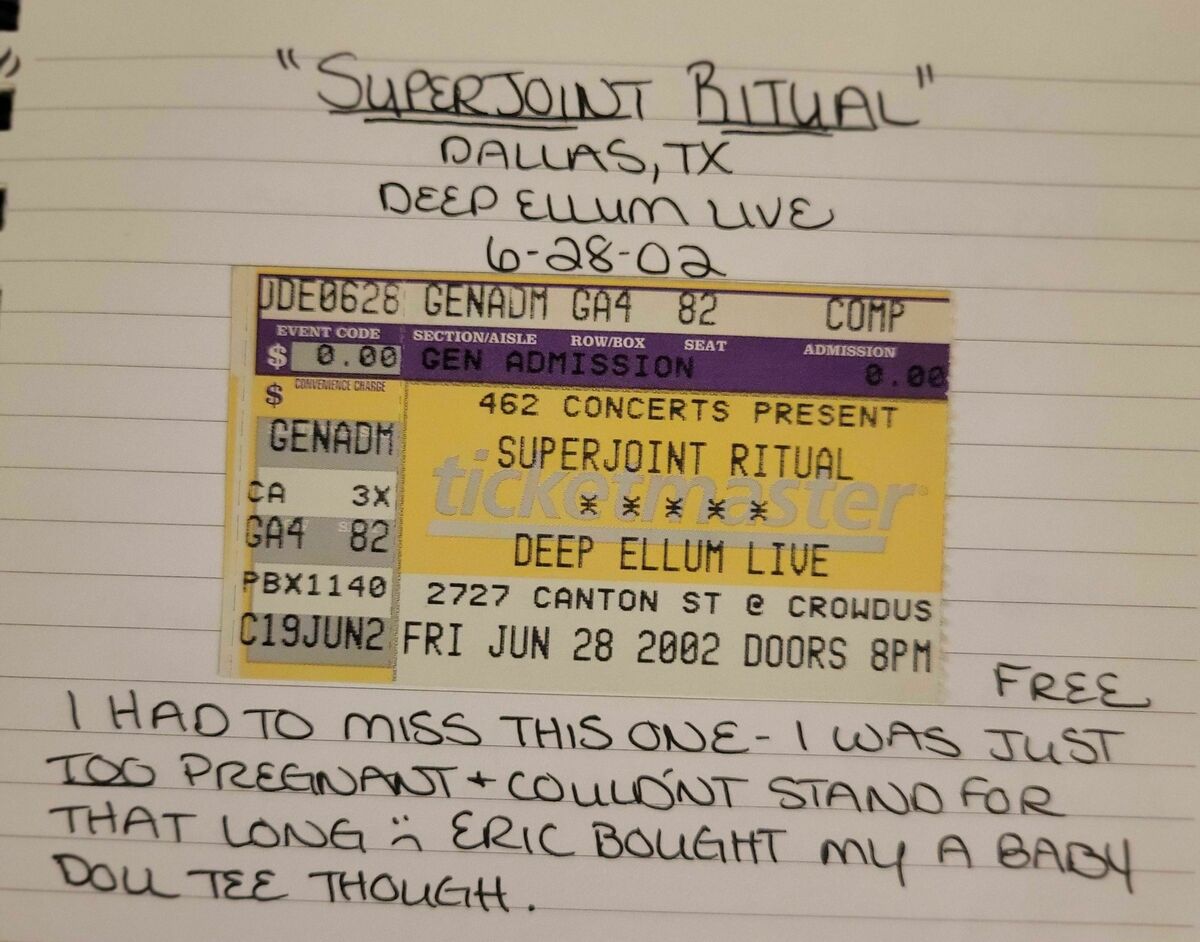 "SUPERJOINT RITUAL"
DALLAS, TX
DEEP ELLUM LIVE
6-28-02
DDE0628 GENADM GA4 82 COMP
EVENT CODE SECTION/AISLE ROW/BOX SEAT ADMISSION
$ 0.00 GEN ADMISSION 0.00
$ CONVENIENCE CHARGE
462 CONCERTS PRESENT
GENADM SUPERJOINT RITUAL
ticketmaster
CA 3X * * * * *
GA4 82 DEEP ELLUM LIVE
PBX1140 2727 CANTON ST @ CROWDUS
C19JUN2 FRI JUN 28 2002 DOORS 8PM
FREE
I HAD TO MISS THIS ONE - I WAS JUST
TOO PREGNANT + COULDN'T STAND FOR
THAT LONG :( ERIC BOUGHT MY A BABY
DOLL TEE THOUGH.